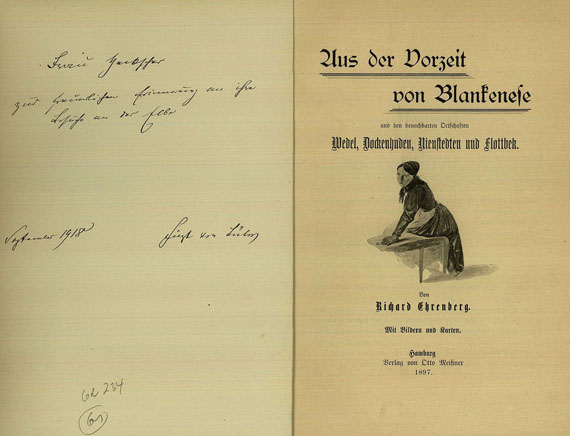 Frau
zur freundlichen Erinnerung an ihre
Besuche an der Elbe
September 1918
Fürst von Bülow
62 234
61
Aus der Vorzeit
von Blankenese
und den benachbarten Ortschaften
Wedel, Dockenhuden, Nienstedten und Flottbek.
Von
Richard Ehrenberg.
Mit Bildern und Karten.
Hamburg
Verlag von Otto Meißner
1897.